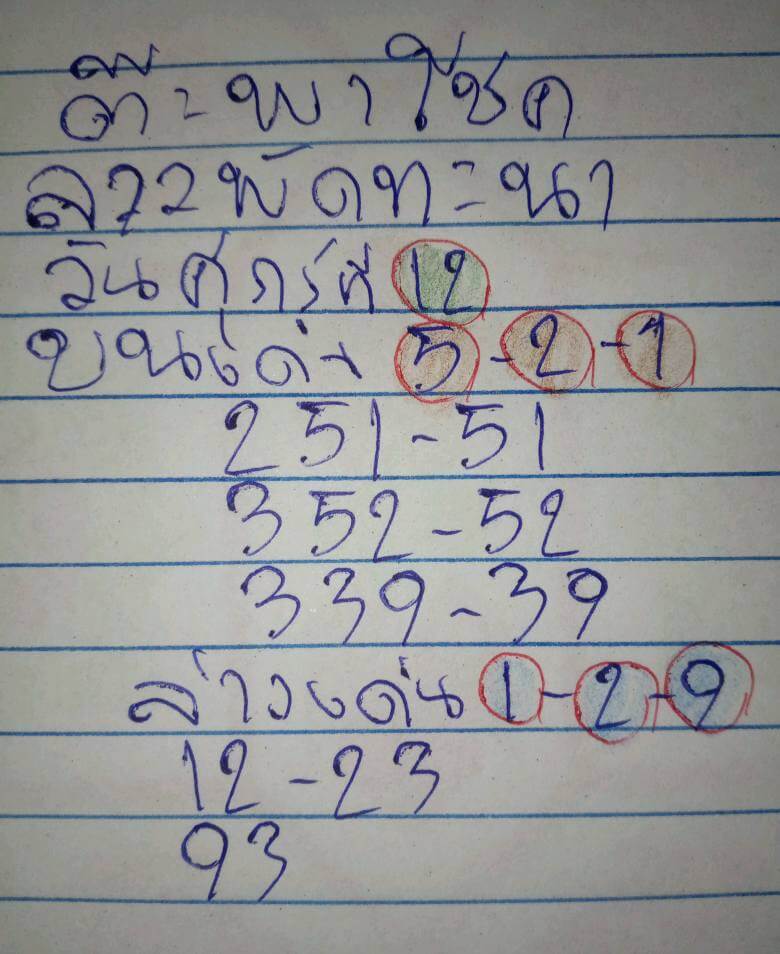 ต๊ะ-พาโชค
ลาวพัดทะนา
วันศุกร์ที่ 12
บนเด่น 5-2-1
251-51
352-52
339-39
ล่างเด่น 1-2-9
12-23
93